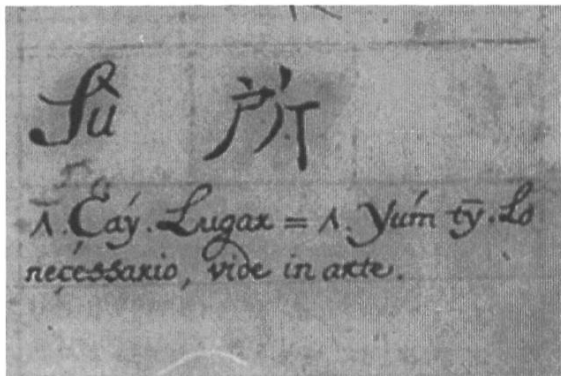 Su 所
ʌ̄. Çay. Lugar = ʌ. Yum ty. Lo
neçessario, vide in arte.